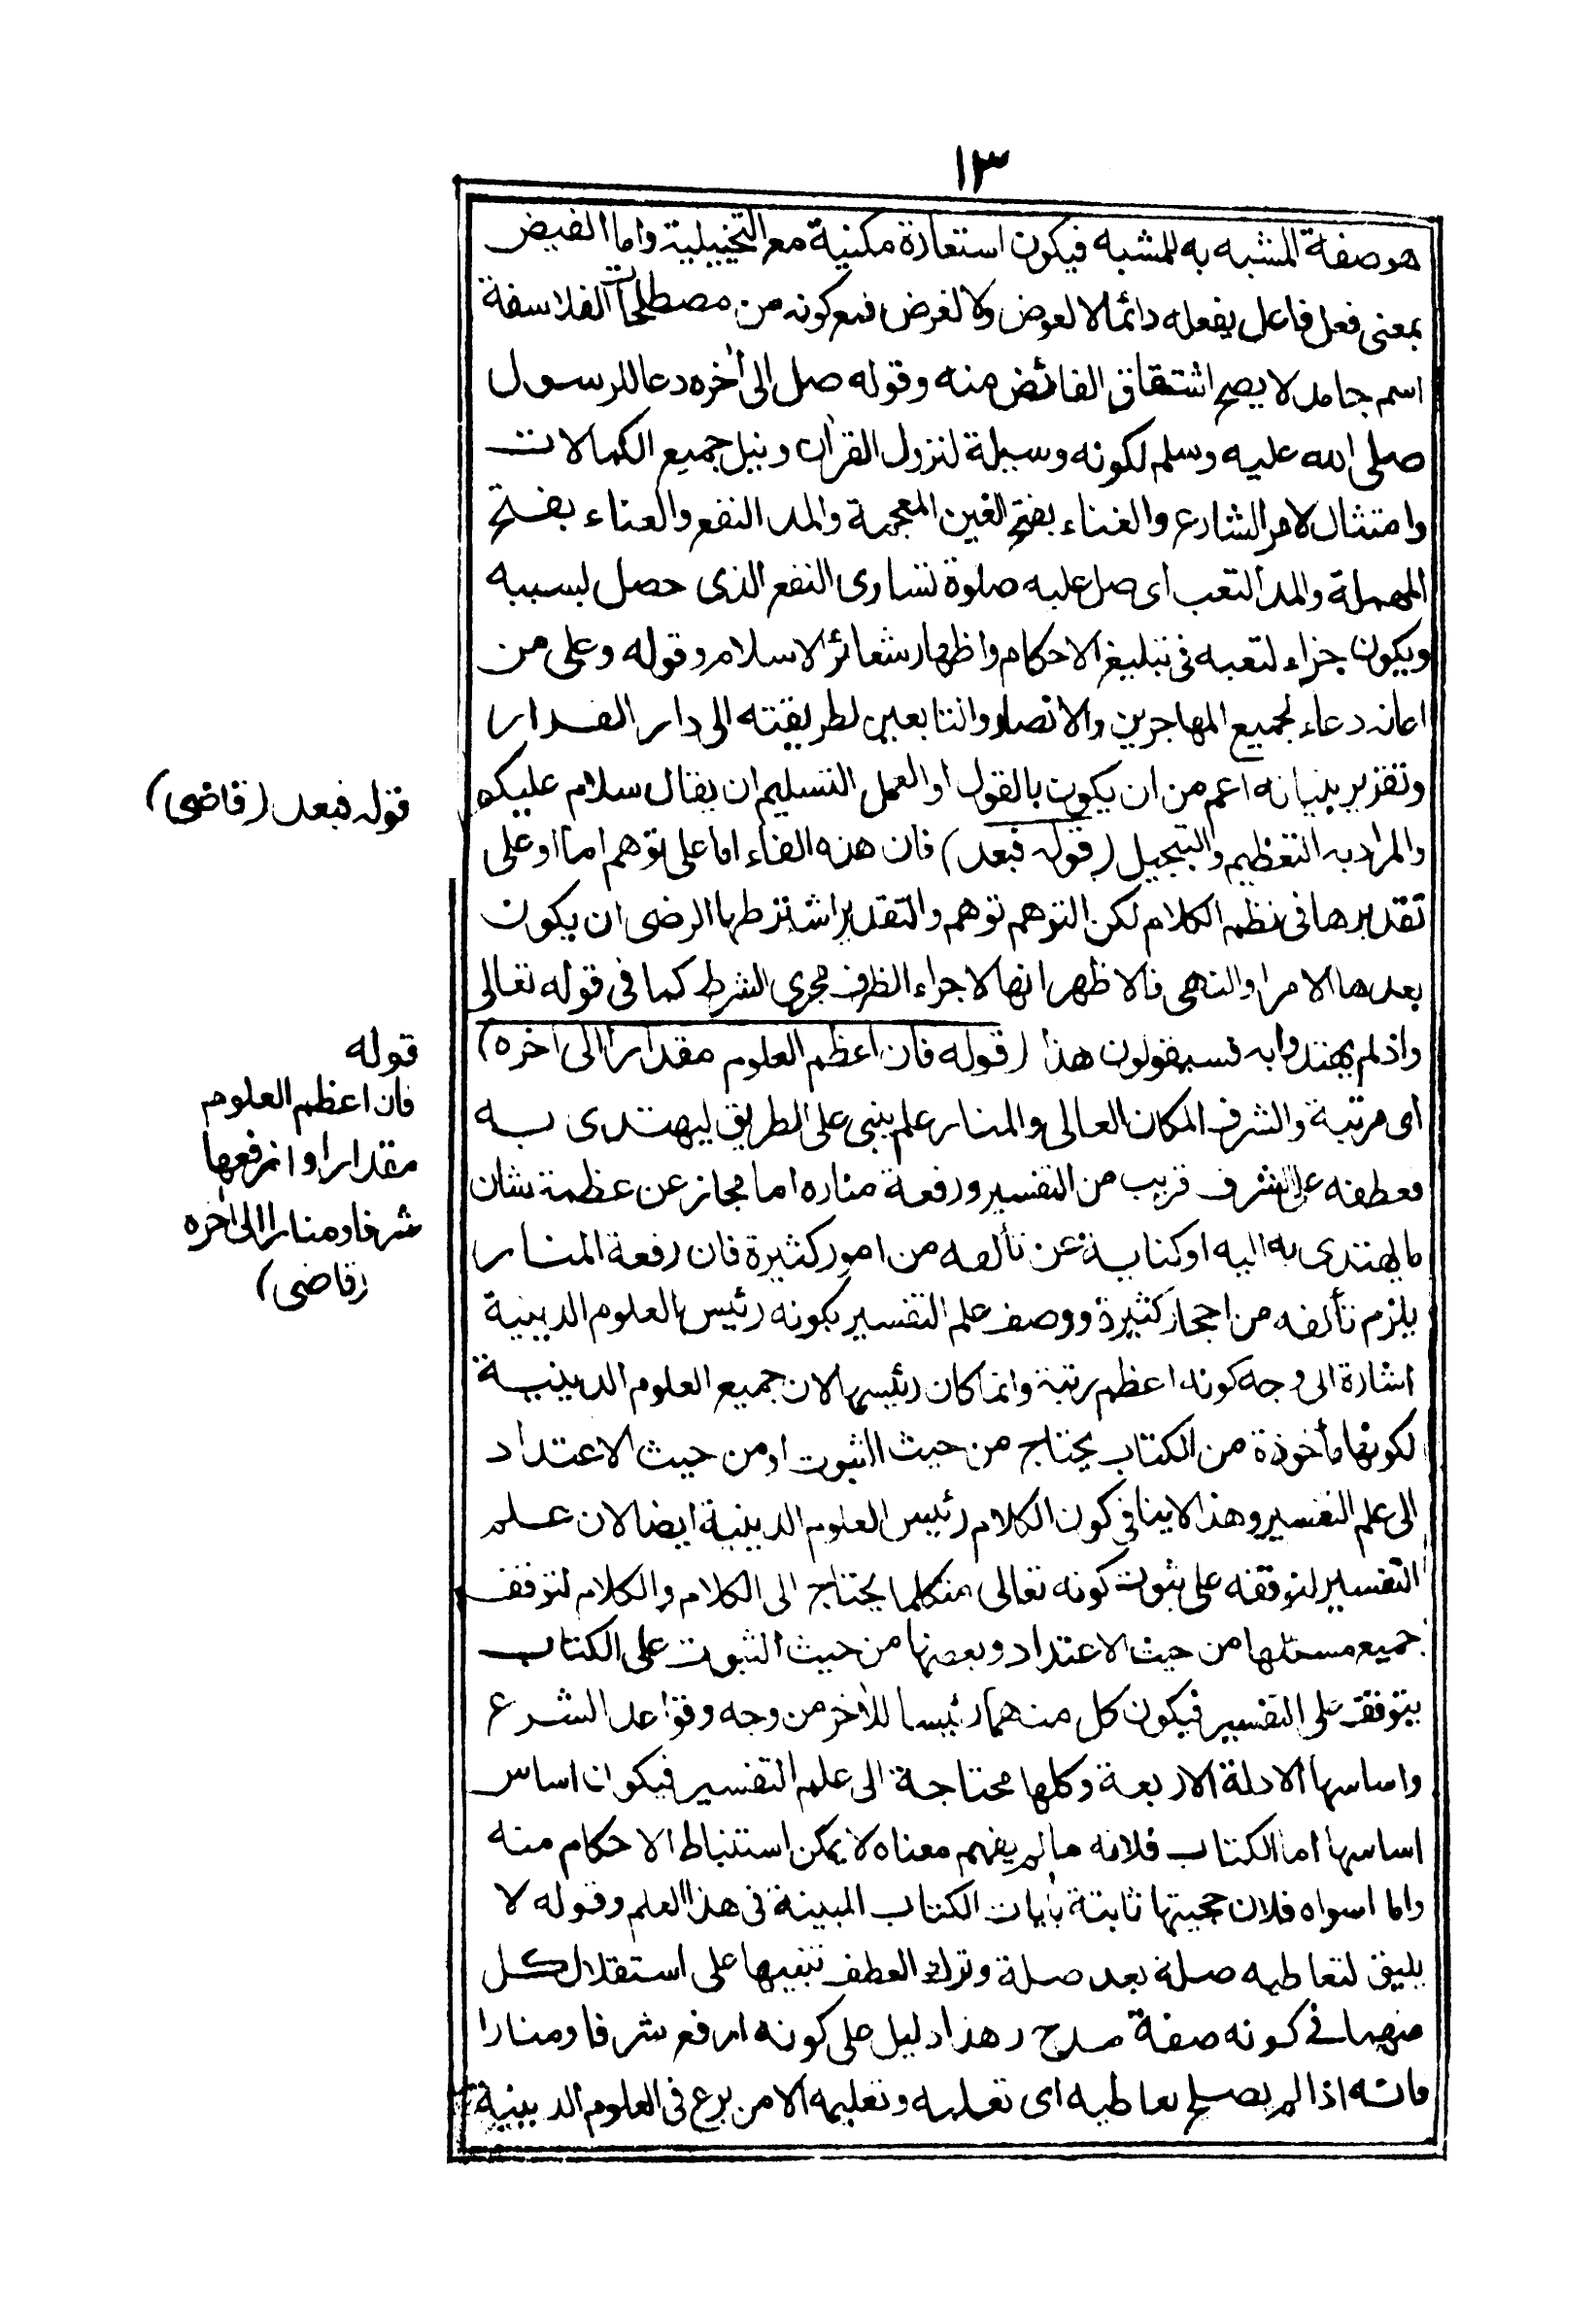 ١٣
هو صفة المشبه به للمشبه فيكون استعارة مكنية مع التخييلية واما الفيض
بمعنى فعل فاعل يفعله دائما لا لعوض ولا لغرض فمع كونه من مصطلحات الفلاسفة
اسم جامد لا يصح اشتقاق الفائض منه وقوله صل الى أخره دعا للرسول
صلى الله عليه وسلم لكونه وسيلة لنزول القرأن ونيل جميع الكمالات
وامتثال لامر الشارع والغناء بفتح الغين المعجمة والمد النفع والعناء بفتح
المهملة والمد التعب اى صل عليه صلوة تساوى النفع الذى حصل بسببه
ويكون جزاء لتعبه فى تبليغ الاحكام واظهار شعائر الاسلام وقوله وعلى من
اعانه دعاء لجميع المهاجرين والانصار والتابعين لطريقته الى دار القرار
وتقرير بنيانه اعم من ان يكون بالقول او العمل التسليم ان يقال سلام عليكم
والمراد به التعظيم والتبجيل (قوله فبعد) فان هذه الفاء اما على توهم اما او على
تقديرها فى نظم الكلام لكن التوهم توهم والتقدير اشترطها الرضى ان يكون
بعدها الامر او النهى فالاظهر انها لاجراء الظرف مجرى الشرط كما فى قوله تعالى
واذ لم يهتدوا به فسيقولون هذا (قوله فان اعظم العلوم مقدارا الى أخره)
اى مرتبة والشرف المكان العالى والمنار علم ينبى على الطريق ليهتدى به
فعطفه على الشرف قريب من التفسير ورفعة مناره اما مجاز عن عظمة شان
ما يهتدى به اليه او كناية عن تألفه من امور كثيرة فان رفعة المنار
يلزم تألفه من احجار كثيرة ووصف علم التفسير بكونه رئيس العلوم الدينية
اشارة الى وجه كونه اعظم رتبة وانما كان رئيسها لان جميع العلوم الدينية
لكونها مأخوذة من الكتاب يحتاج من حيث الثبوت او من حيث الاعتداد
الى علم التفسير وهذا لا ينافى كون الكلام رئيس العلوم الدينية ايضا لان علم
التفسير لتوقفه على ثبوت كونه تعالى متكلما يحتاج الى الكلام والكلام لتوقف
جميع مسئلها من حيث الاعتداد وبعضها من حيث الثبوت على الكتاب
يتوقف على التفسير فيكون كل منهما رئيسا للأخر من وجه وقواعد الشرع
واساسها الادلة الاربعة وكلها محتاجة الى علم التفسير فيكون اساس
اساسها اما الكتاب فلانه ما لم يفهم معناه لا يمكن استنباط الاحكام منه
واما اسواه فلان حجيتها ثابتة بأيات الكتاب المبينة فى هذا العلم وقوله لا
يليق لتعاطيه صلة بعد صلة وترك العطف تنبيها على استقلال كل
منهما فى كونه صفة مدح وهذا دليل على كونه ارفع شرفا ومنارا
فانه اذا لم يصلح تعاطيه اى تعلمه وتعليمه الا من برع فى العلوم الدينية
قوله فبعد (قاضى)
قوله
فان اعظم العلوم
مقدارا وارفعها
شرفا ومنارا الى أخره
(قاضى)